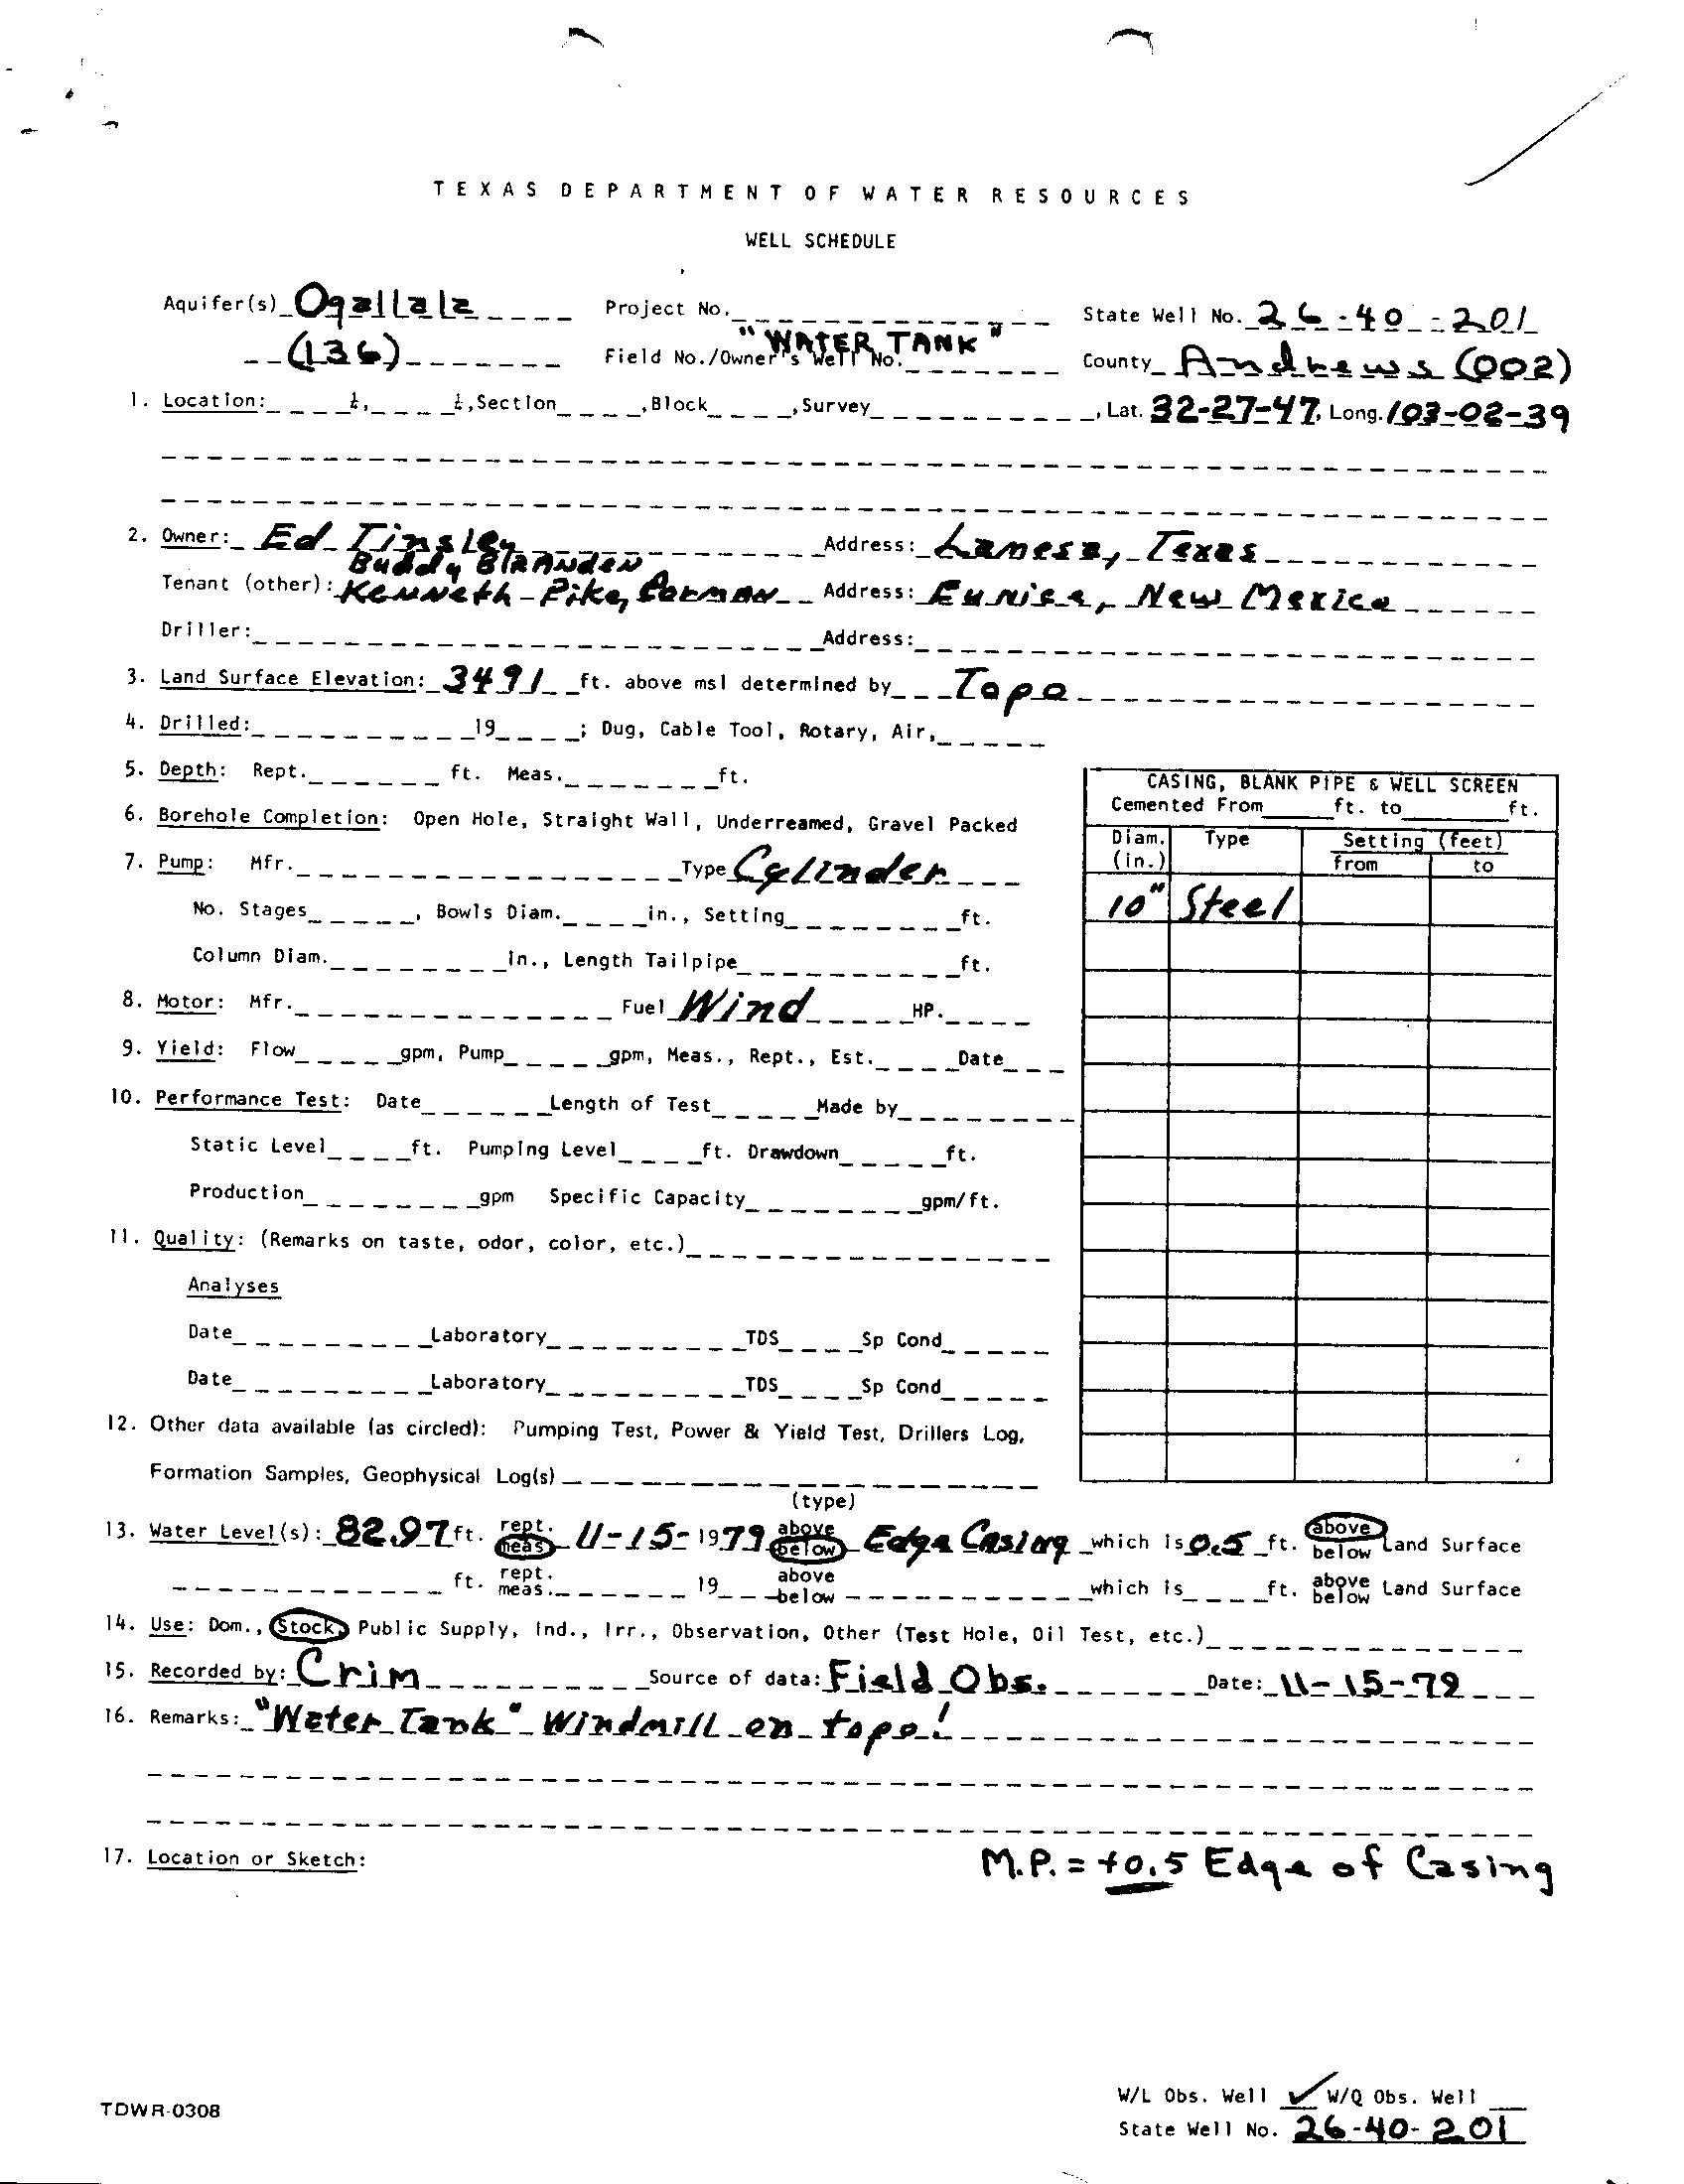 TEXAS DEPARTMENT OF WATER RESOURCES
WELL SCHEDULE
Aquifer(s) Ogallala Project No. State Well No. 26-40-201
(136) Field No./Owner's Well No. "WATER TANK" County Andrews (002)
1. Location: ¼, ¼, Section , Block , Survey , Lat. 32-27-47, Long. 103-02-39
2. Owner: Ed Tinsley Address: Lamesa, Texas
Buddy
Tenant (other): Kenneth Pike, Address: Eunice, New Mexico
Driller: Address:
3. Land Surface Elevation: 3491 ft. above msl determined by Topo
4. Drilled: 19 ; Dug, Cable Tool, Rotary, Air,
5. Depth: Rept. ft. Meas. ft.
6. Borehole Completion: Open Hole, Straight Wall, Underreamed, Gravel Packed
7. Pump: Mfr. Type Cylinder
No. Stages , Bowls Diam. in., Setting ft.
Column Diam. in., Length Tailpipe ft.
8. Motor: Mfr. Fuel Wind HP.
9. Yield: Flow gpm, Pump gpm, Meas., Rept., Est. Date
10. Performance Test: Date Length of Test Made by
Static Level ft. Pumping Level ft. Drawdown ft.
Production gpm Specific Capacity gpm/ft.
11. Quality: (Remarks on taste, odor, color, etc.)
Analyses
Date Laboratory TDS Sp Cond
Date Laboratory TDS Sp Cond
12. Other data available (as circled): Pumping Test, Power & Yield Test, Drillers Log,
Formation Samples, Geophysical Log(s)
(type)
CASING, BLANK PIPE & WELL SCREEN
Cemented From ft. to ft.
Diam. (in.) Type Setting (feet)
from to
10" Steel
13. Water Level(s): 82.97 ft. rept. meas. 11-15-1979 above below Edge Casing which is 0.5 ft. above below Land Surface
ft. rept. meas. 19 above below which is ft. above below Land Surface
14. Use: Dom., Stock, Public Supply, Ind., Irr., Observation, Other (Test Hole, Oil Test, etc.)
15. Recorded by: Crim Source of data: Field Obs. Date: 11-15-79
16. Remarks: "Water Tank" Windmill on topo!
17. Location or Sketch: M.P. = +0.5 Edge of Casing
W/L Obs. Well ✓ W/Q Obs. Well
TDWR-0308
State Well No. 26-40-201